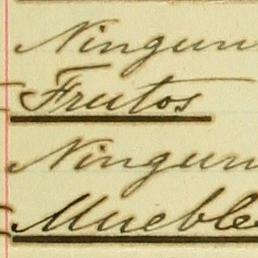 Ningun
Frutos
Ningun
Mueble